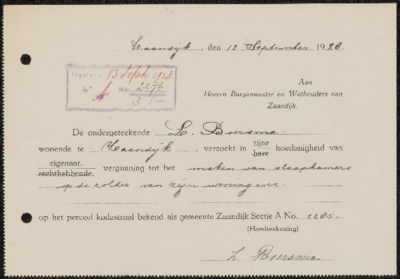 Zaandijk, den 12 September 1928
Ingekomen 13 Septr. 1928
No. 2276
Aan
Heeren Burgemeester en Wethouders van
Zaandijk.
De ondergeteekende L. Boersma
wonende te Zaandijk, verzoekt in zijne hoedanigheid van
hare
eigenaar,
rechthebbende, vergunning tot het maken van slaapkamers
op de zolder van zijn woning
op het perceel kadastraal bekend als gemeente Zaandijk Sectie A No. 2285.
(Handteekening)
L. Boersma